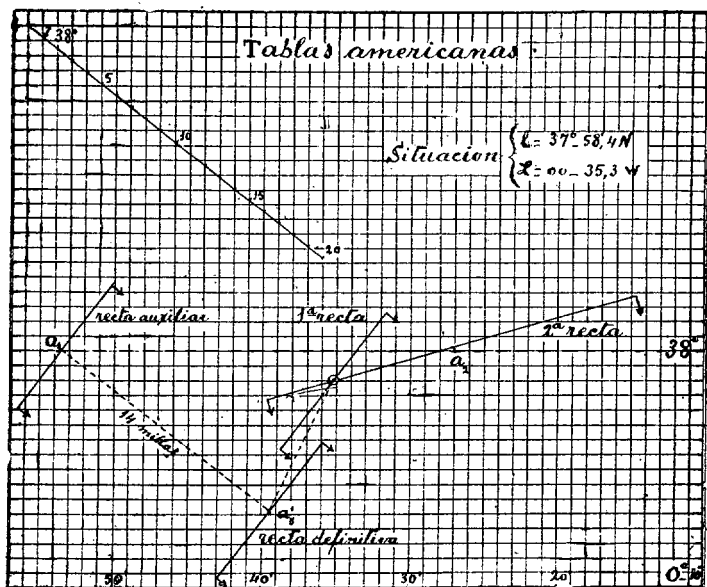 Tablas americanas.
38°
5
10
15
20
Situacion
l = 37°- 58,4 N
L = 00 - 35,3 W
recta auxiliar
1ª recta
2ª recta
a₁
a₂
38°
14 millas
a'₁
recta definitiva
50
40'
30'
20'